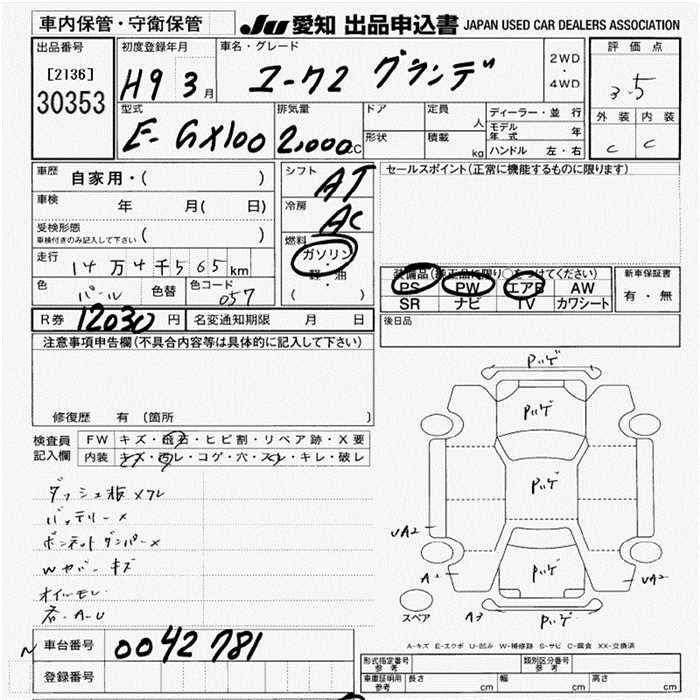 車内保管・守衛保管
JU 愛知 出品申込書 JAPAN USED CAR DEALERS ASSOCIATION
出品番号
[2136]
30353
初度登録年月
H9 3月
車名・グレード
マーク2 グランデ
2WD
・
4WD
評価点
3.5
外装 内装
C C
型式
E-GX100
排気量
2,000cc
ドア
形状
定員
人
積載
kg
ディーラー・並行
モデル年式 年
ハンドル 左・右
車歴
自家用・( )
車検
年 月( 日)
受検形態
車検付きのみ記入して下さい ( )
走行
14万4千565km
色
パール
色替
色コード
057
シフト
AT
冷房
AC
燃料
ガソリン
・
軽・油
( )
セールスポイント(正常に機能するものに限ります)
装備品(純正品に限り○をつけてください)
PS PW エアB AW
SR ナビ TV カワシート
新車保証書
有・無
R券 12030円 名変通知期限 月 日
後日品
注意事項申告欄(不具合内容等は具体的に記入して下さい)
修復歴 有 〔箇所 〕
検査員
記入欄
FW キズ・飛石・ヒビ割・リペア跡・X要
内装 キズ・汚レ・コゲ・穴・スレ・キレ・破レ
ダッシュ板メクレ
バッテリーX
ボンネットダンパーX
Wカバーキズ
オイルモレ
各A-U
Pハゲ
Pハゲ
Pハゲ
Pハゲ
Pハゲ
UA2
A2
UA2
A3
スペア
A-キズ E-エクボ U-凹み W-補修跡 S-サビ C-腐食 XX-交換済
N
車台番号 0042781
登録番号
形式指定番号
参考
類別区分番号
参考
車庫証明用
参考
長さ cm 幅 cm 高さ cm